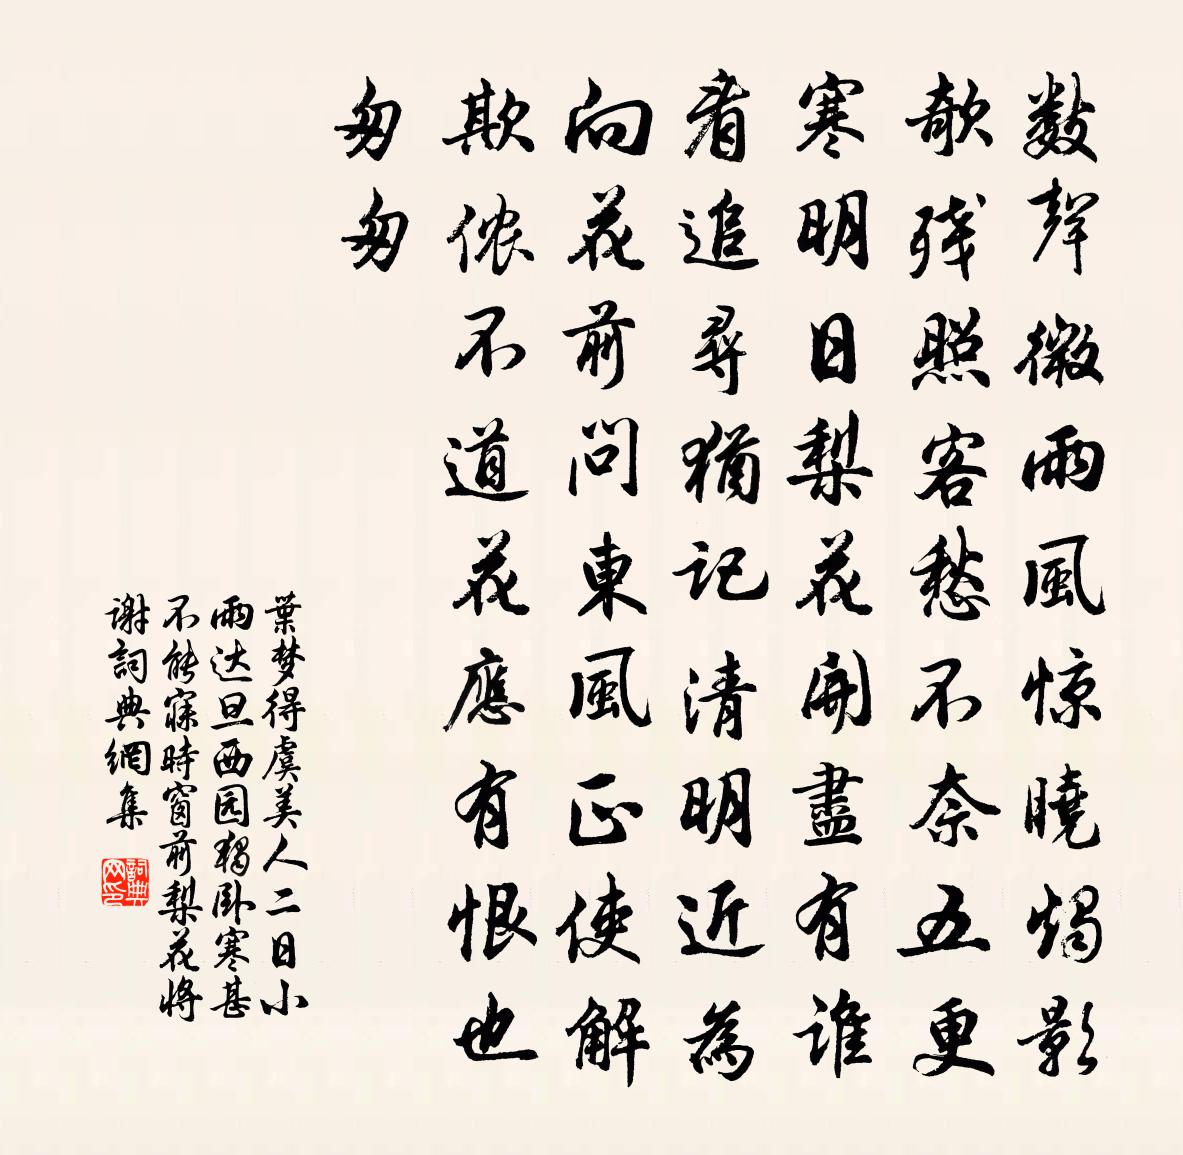 數聲微雨風惊曉燭影
欹殘照客愁不奈五更
寒明日梨花開盡有誰
看追尋猶記清明近為
向花前問東風正使解
欺侬不道花應有恨也
匆匆
葉梦得虞美人二日小
雨达旦西园獨卧寒甚
不能寐時窗前梨花將
謝詞典網集
詞典
网印